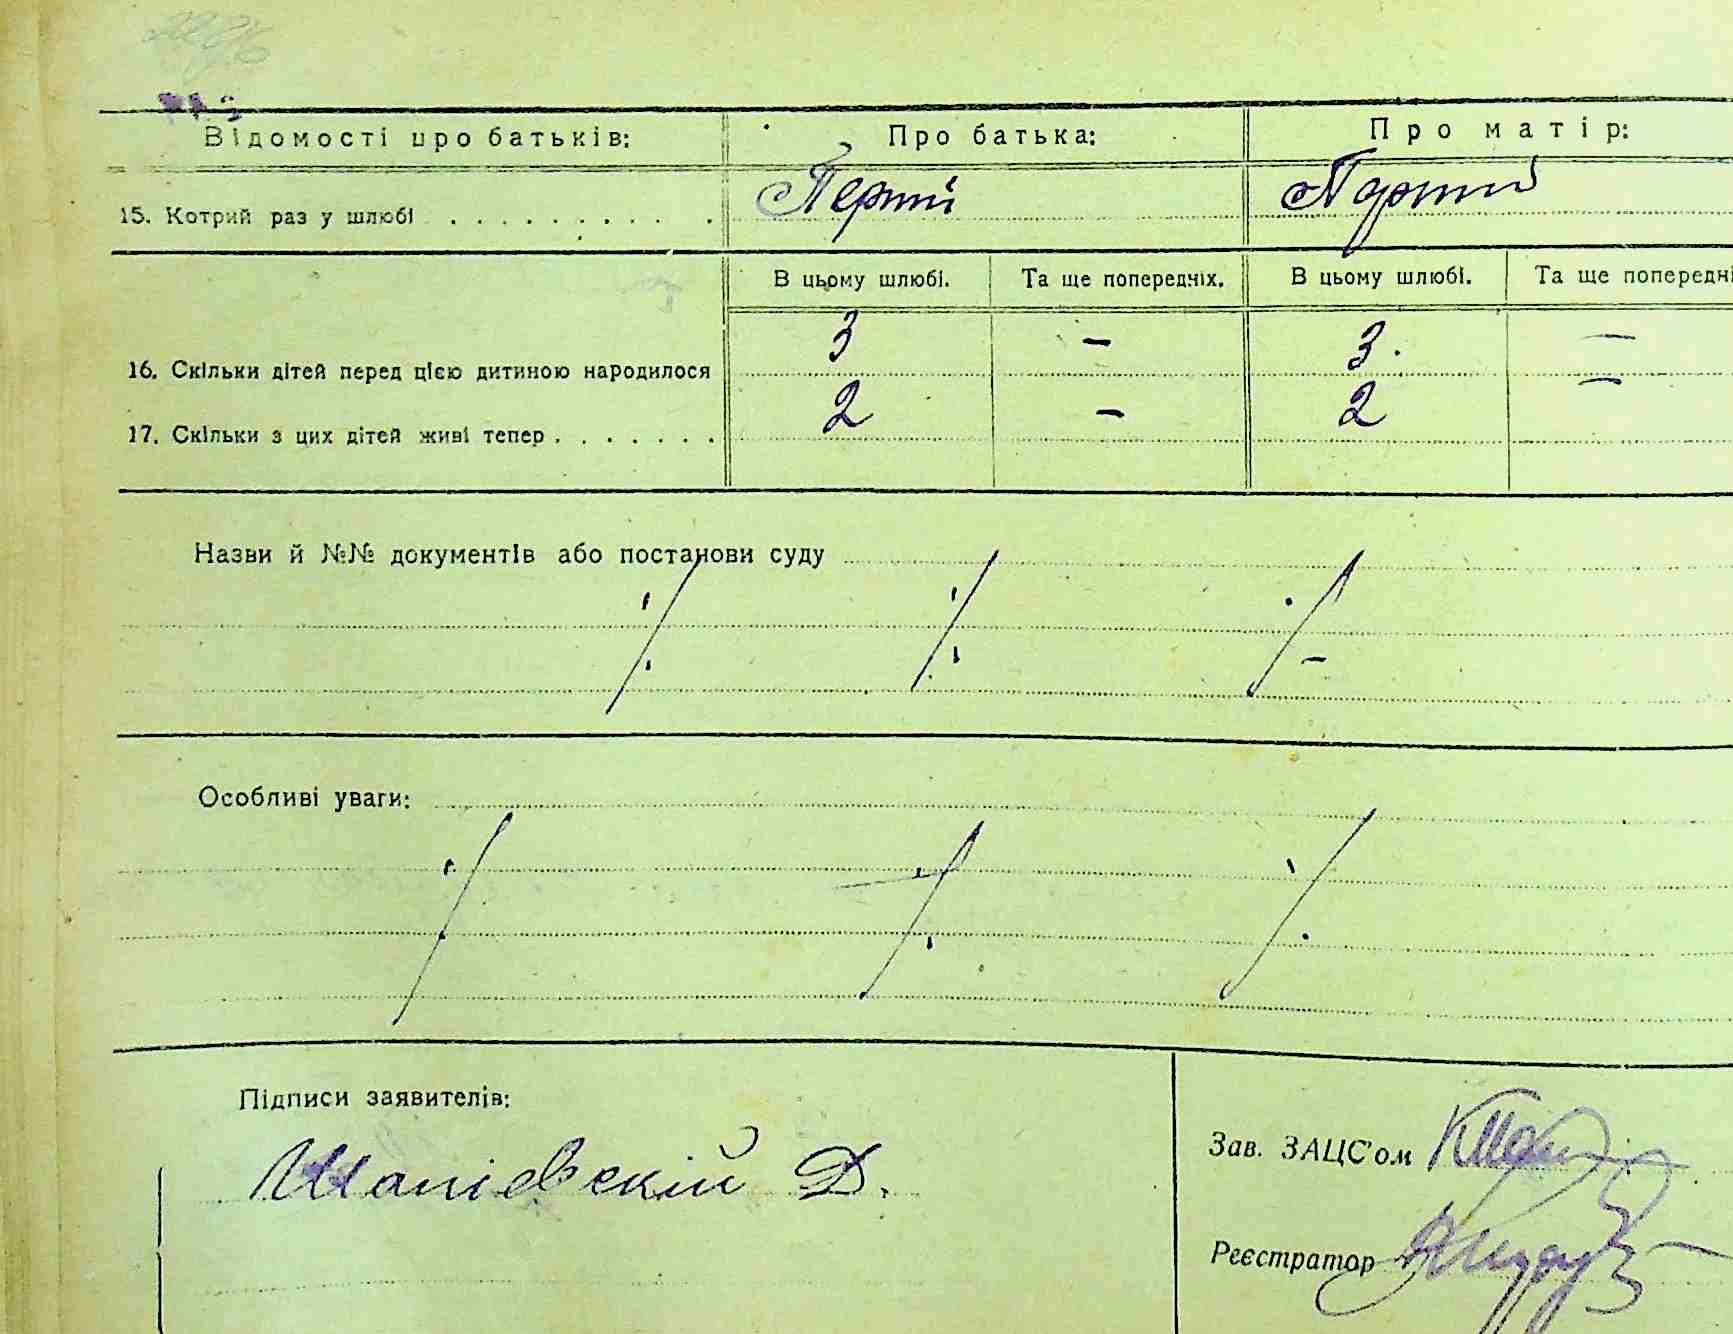 Відомості про батьків: Про батька: Про матір:
15. Котрий раз у шлюбі . . . . . . . . . . . Перший Перший
В цьому шлюбі. Та ще попередніх. В цьому шлюбі. Та ще попередні
16. Скільки дітей перед цією дитиною народилося 3 – 3. –
17. Скільки з цих дітей живі тепер . . . . . . . 2 – 2 –
Назви й №№ документів або постанови суду
Особливі уваги:
Підписи заявителів:
Зав. ЗАЦС'ом
Шапієвскій Д.
Реєстратор